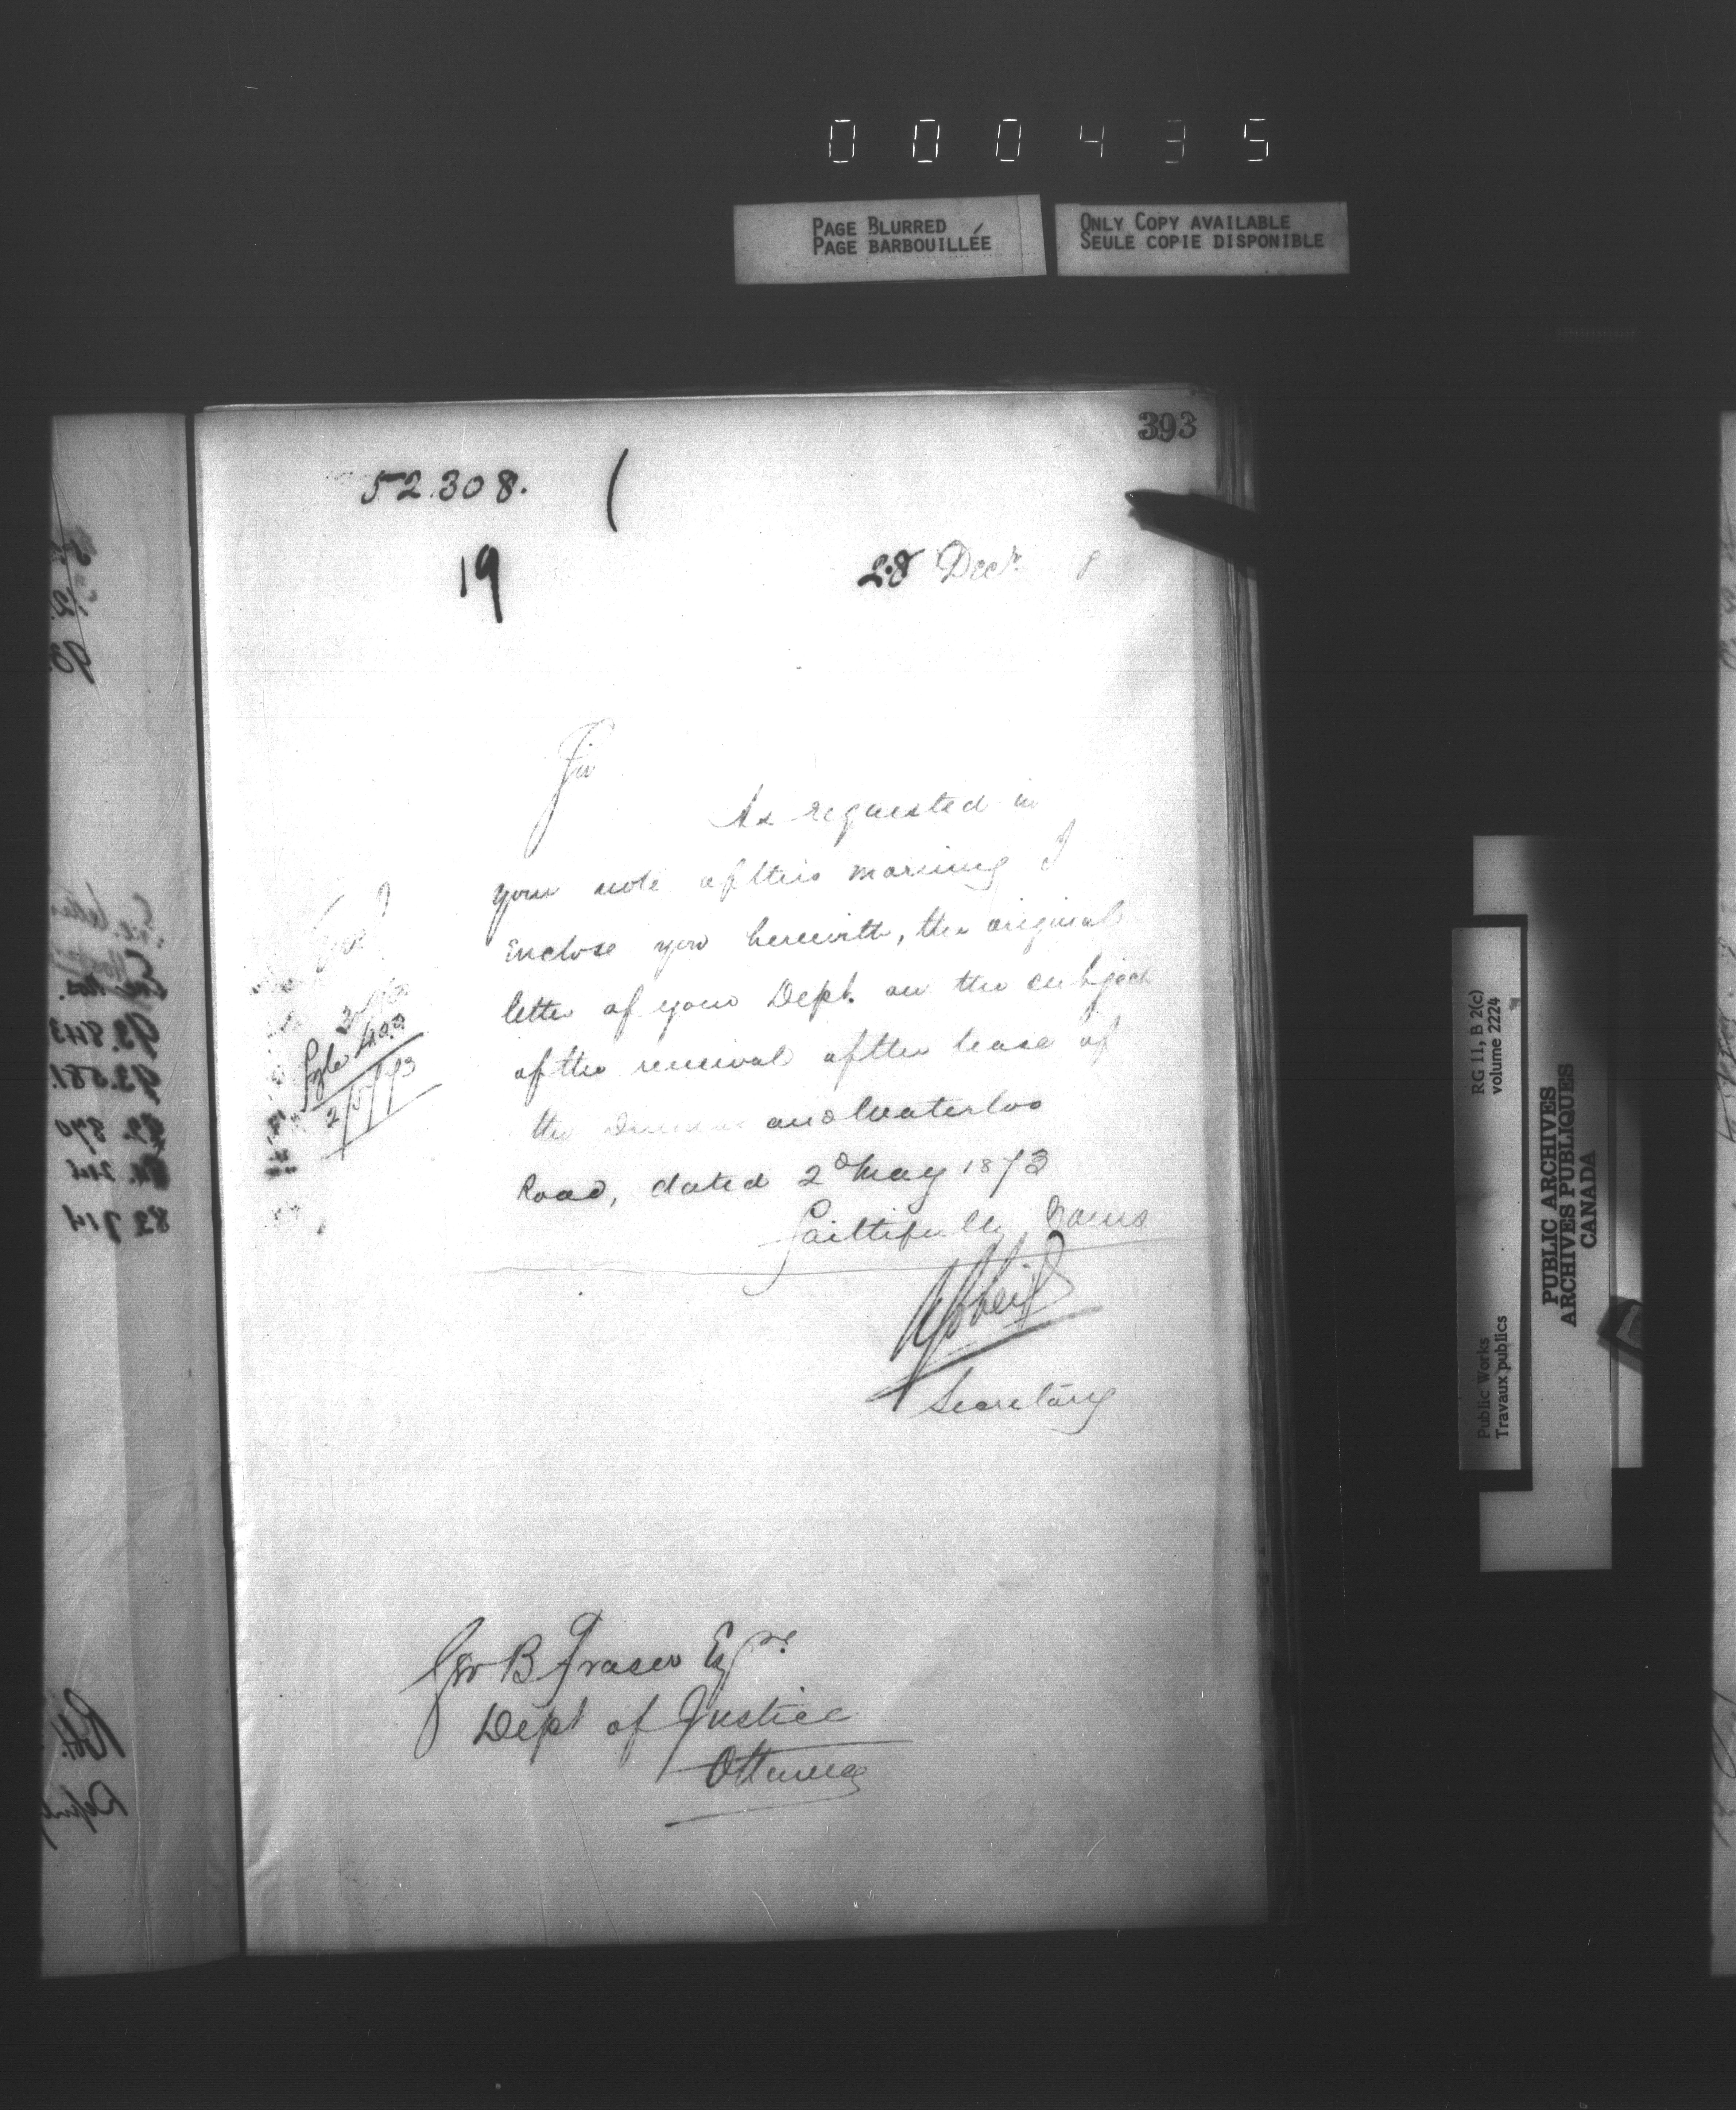 000435
PAGE BLURRED
PAGE BARBOUILLÉE
ONLY COPY AVAILABLE
SEULE COPIE DISPONIBLE
393
52.308.
19
28 Decr
Sir
As requested in
your note of this morning I
enclose you herewith, the original
letter of your Dept. on the subject
of the renewal of the lease of
the and Waterloo
Road, dated 2d May 1873
Faithfully Yours
Secretary
2/5/73
Geo B Fraser Esqre.
Dept of Justice
Ottawa
RG 11, B 2(c)
volume 2224
Public Works
Travaux publics
PUBLIC ARCHIVES
ARCHIVES PUBLIQUES
CANADA